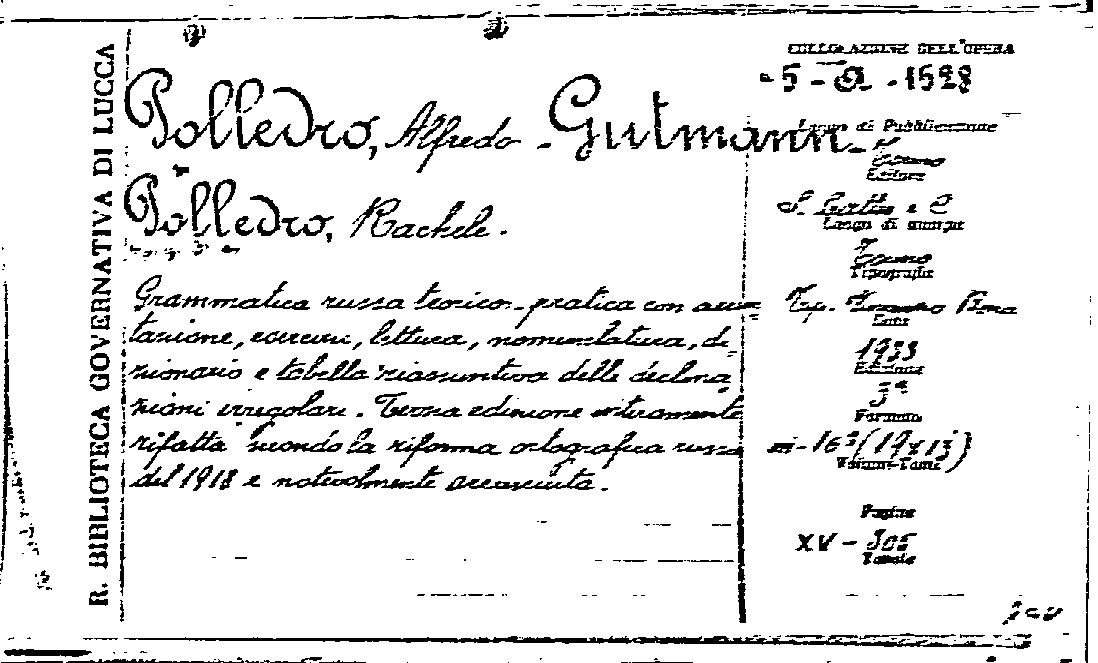 R. BIBLIOTECA GOVERNATIVA DI LUCCA
Polledro, Alfredo - Gutmann-
Polledro, Rachele.
Grammatica russa teorico-pratica con accen=
tazione, esercizi, lettura, nomenclatura, di=
zionario e tabella riassuntiva delle declina
zioni irregolari. Terza edizione interamente
rifatta secondo la riforma ortografica russa
del 1918 e notevolmente accresciuta.
COLLOCAZIONE DELL'OPERA
5 - 1528
Luogo di Pubblicazione
Torino
Editore
S. Lattes e C
Luogo di stampa
Torino
Tipografia
Tip.
Data
1933
Edizione
3ª
Formato
in-16º (19x13)
Volumi-Tomi
Pagine
XV - 305
Tavole